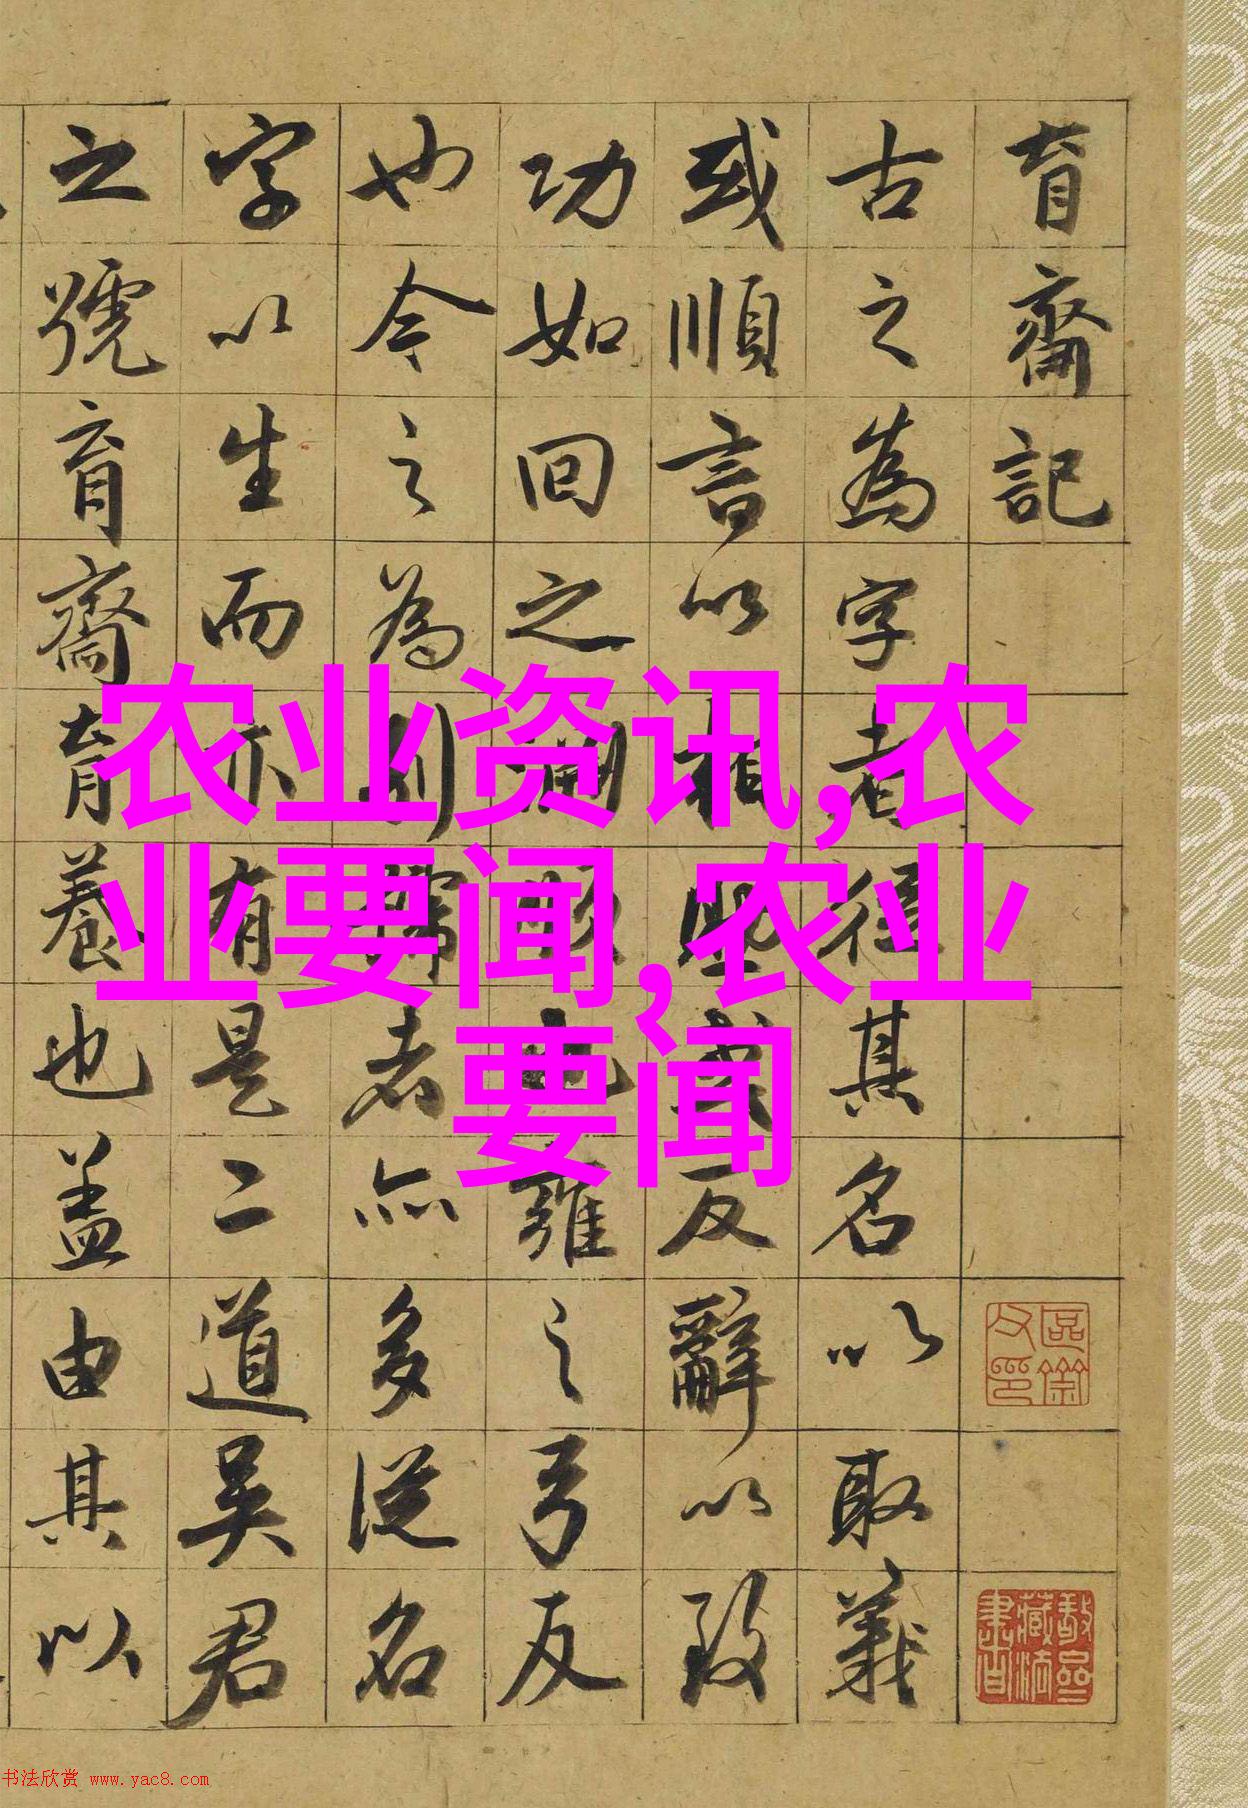 育齋記
古之為字者其名以取義
或順言以相或反辭以致
功如回之淵也雖之弓反
也今之為別稱者亦多從名
字以生而亦有是二道吳君
之號育齋育養也蓋由其以
农业资讯,农
业要闻,农业
要闻
书法欣赏 www.yac8.com